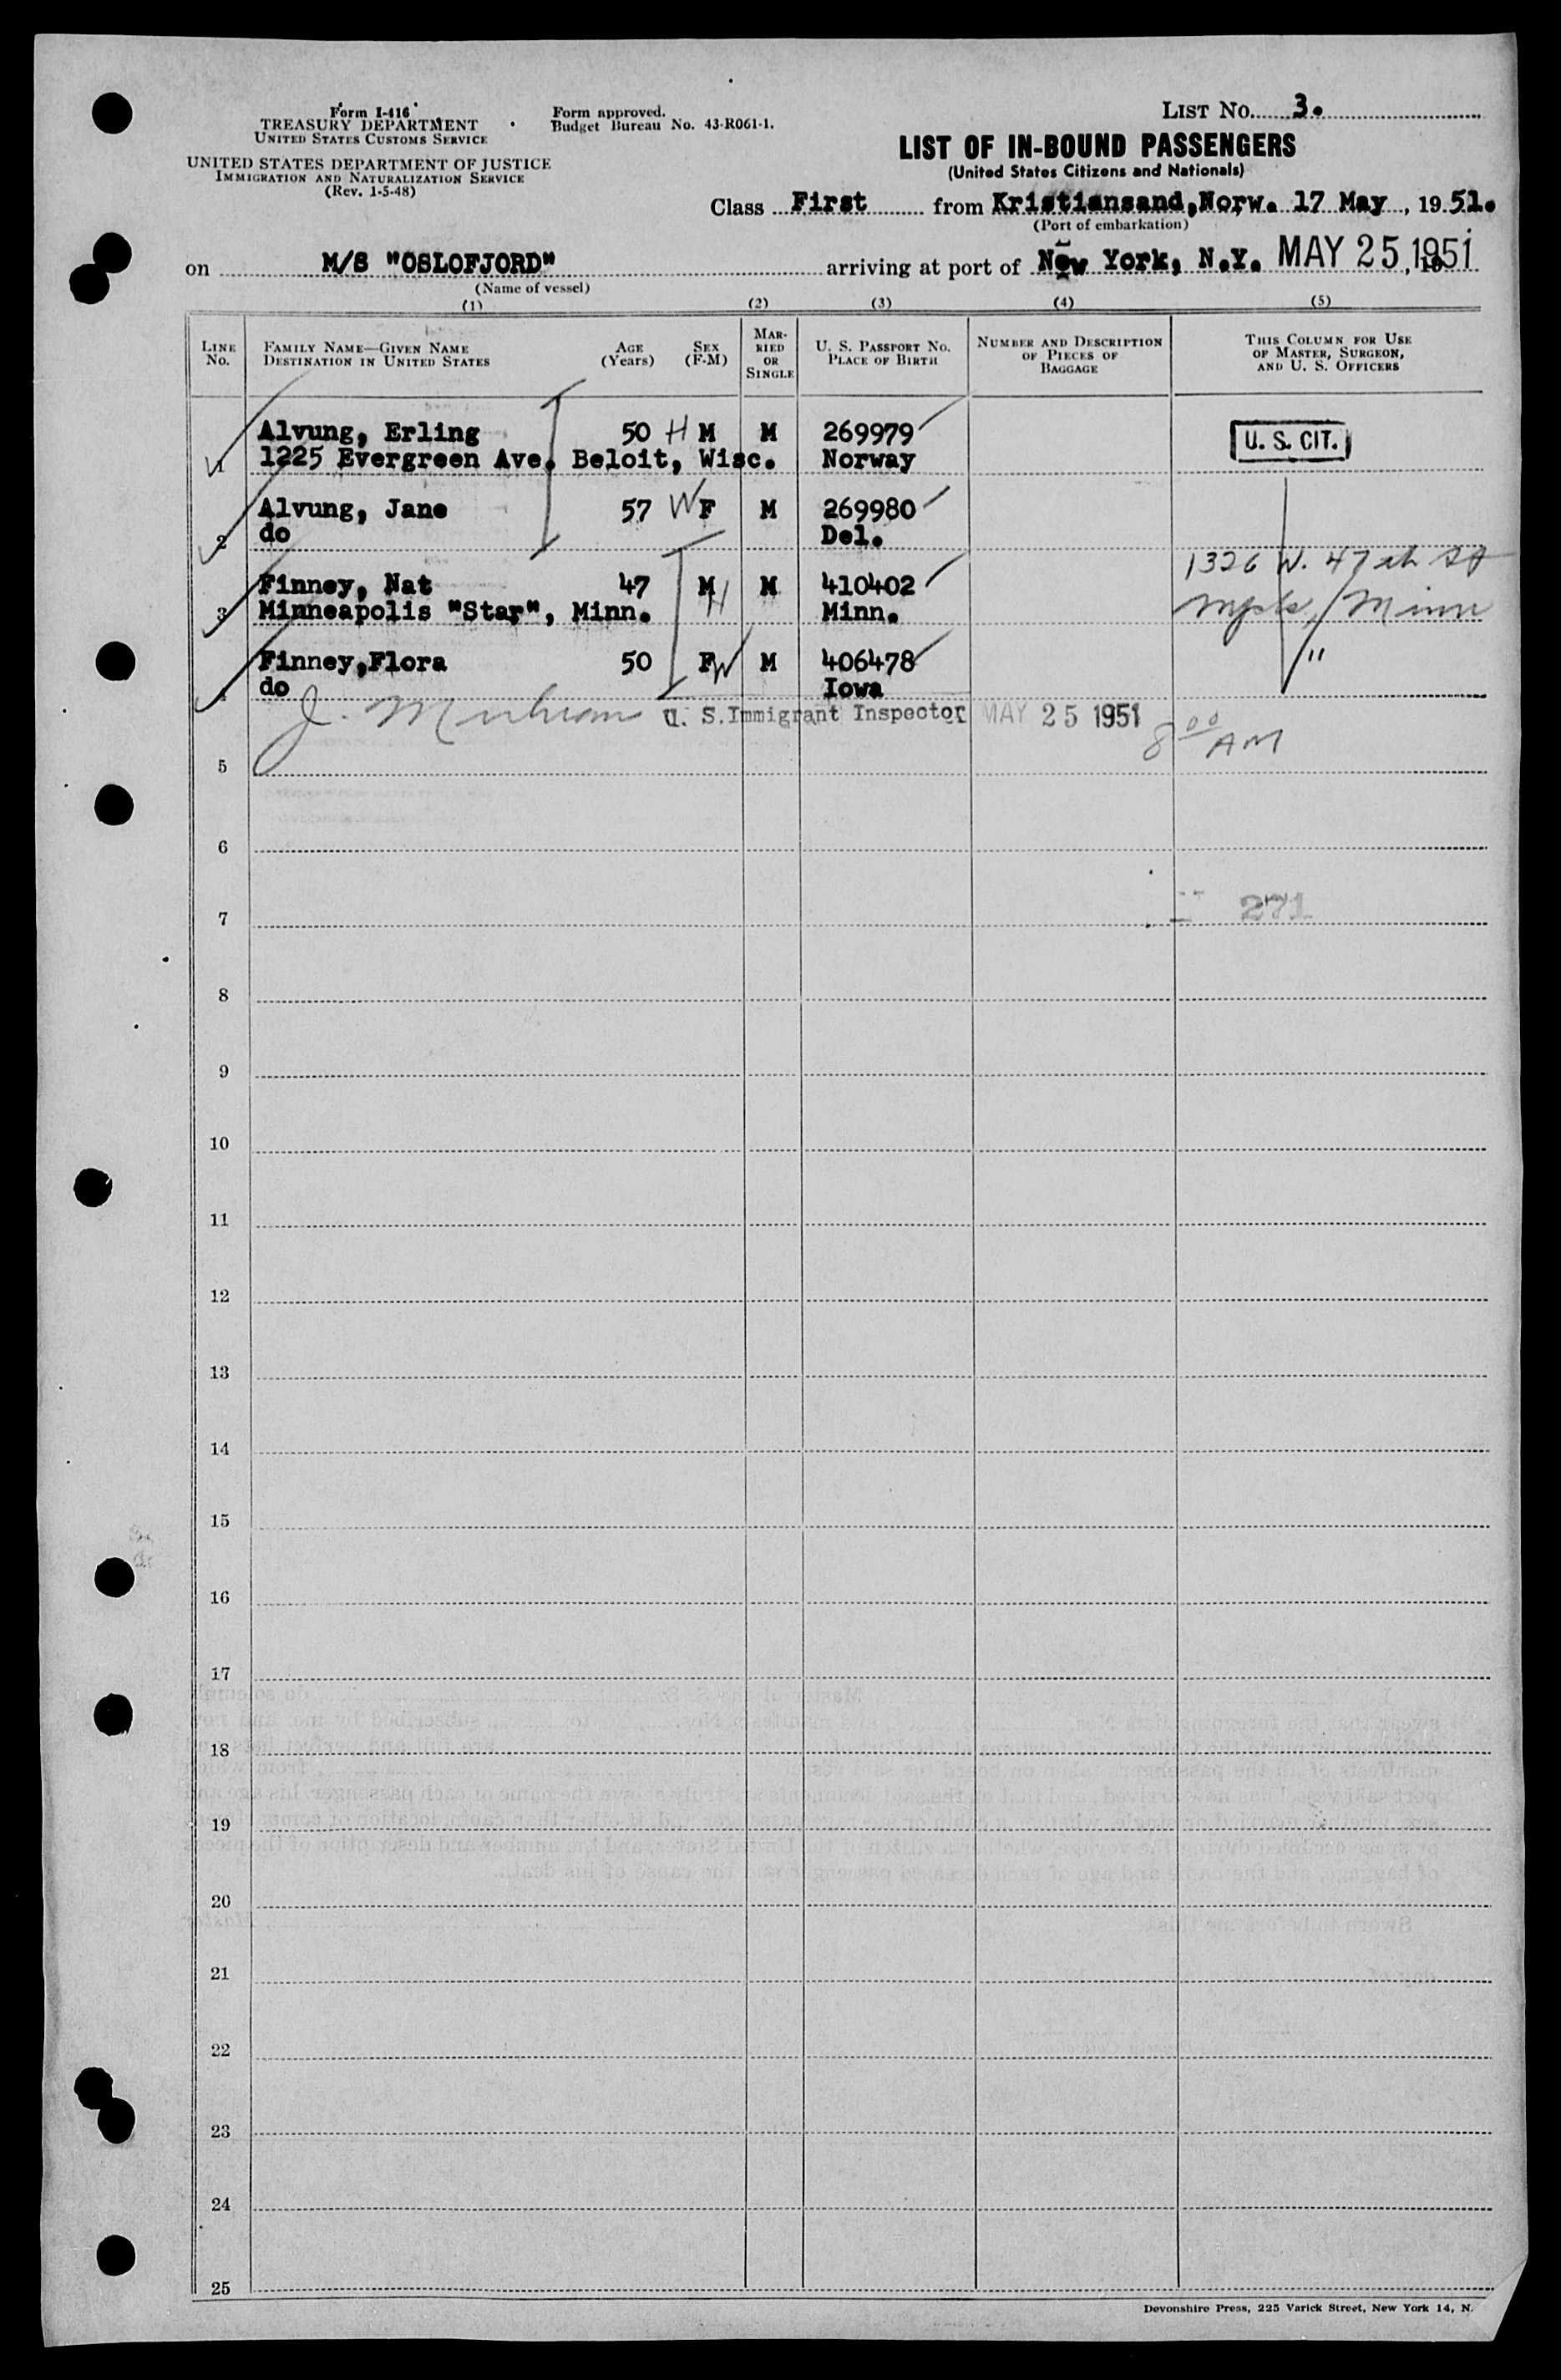 Form I-416
TREASURY DEPARTMENT
UNITED STATES CUSTOMS SERVICE
UNITED STATES DEPARTMENT OF JUSTICE
IMMIGRATION AND NATURALIZATION SERVICE
(Rev. 1-5-48)
Form approved.
Budget Bureau No. 43-R061-1.
LIST NO. 3.
LIST OF IN-BOUND PASSENGERS
(United States Citizens and Nationals)
Class First from Kristiansand, Norw. 17 May, 1951.
(Port of embarkation)
on M/S "OSLOFJORD" arriving at port of New York, N.Y. MAY 25 1951, 19
(Name of vessel)
(1) (2) (3) (4) (5)
LINE NO. FAMILY NAME—GIVEN NAME DESTINATION IN UNITED STATES AGE (Years) SEX (F-M) MARRIED OR SINGLE U. S. PASSPORT NO. PLACE OF BIRTH NUMBER AND DESCRIPTION OF PIECES OF BAGGAGE THIS COLUMN FOR USE OF MASTER, SURGEON, AND U. S. OFFICERS
Alvung, Erling 50 H M M 269979 U. S. CIT.
1 1225 Evergreen Ave. Beloit, Wisc. Norway
Alvung, Jane 57 W F M 269980
2 do Del.
Finney, Nat 47 M H M 410402 1326 W. 47th St
3 Minneapolis "Star", Minn. Minn. Mpls, Minn
Finney, Flora 50 F W M 406478 "
4 do Iowa
J. U. S. Immigrant Inspector MAY 25 1951 8 00 AM
5
6
7 271
8
9
10
11
12
13
14
15
16
17
18
19
20
21
22
23
24
25
Devonshire Press, 225 Varick Street, New York 14, N.